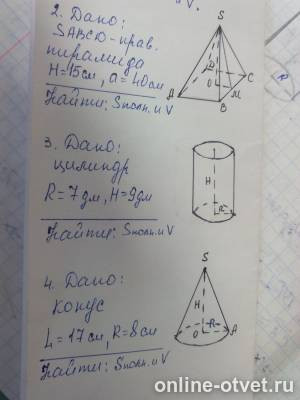 2. Дано:
SABCD - прав.
пирамида
H=15см, a=40см
Найти: Sполн. и V
S
A
B
C
D
O
M
3. Дано:
цилиндр
R=7дм, H=9дм
Найти: Sполн. и V
H
R
4. Дано:
конус
L=17см, R=8см
Найти: Sполн. и V
S
H
R
O
A
online-otvet.ru